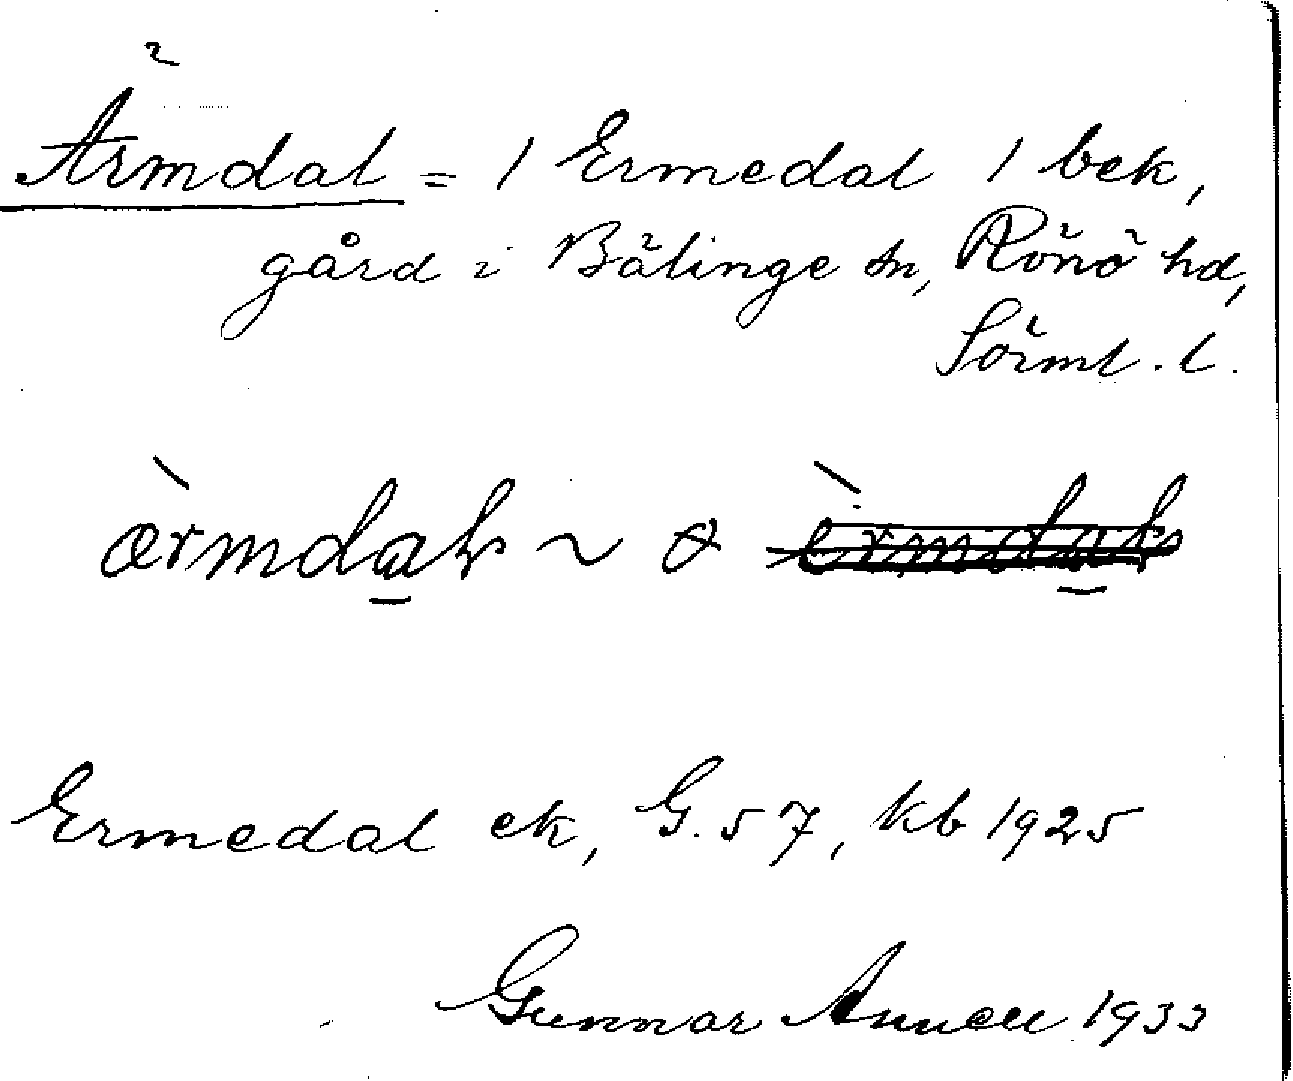 Ärmdal = / Ermedal / bek,
gård i Bälinge sn, Rönö hd,
Sörml. l.
ærmdaḷ ~ &
Ermedal ek, G. 57, kb 1925
Gunnar Annell 1933